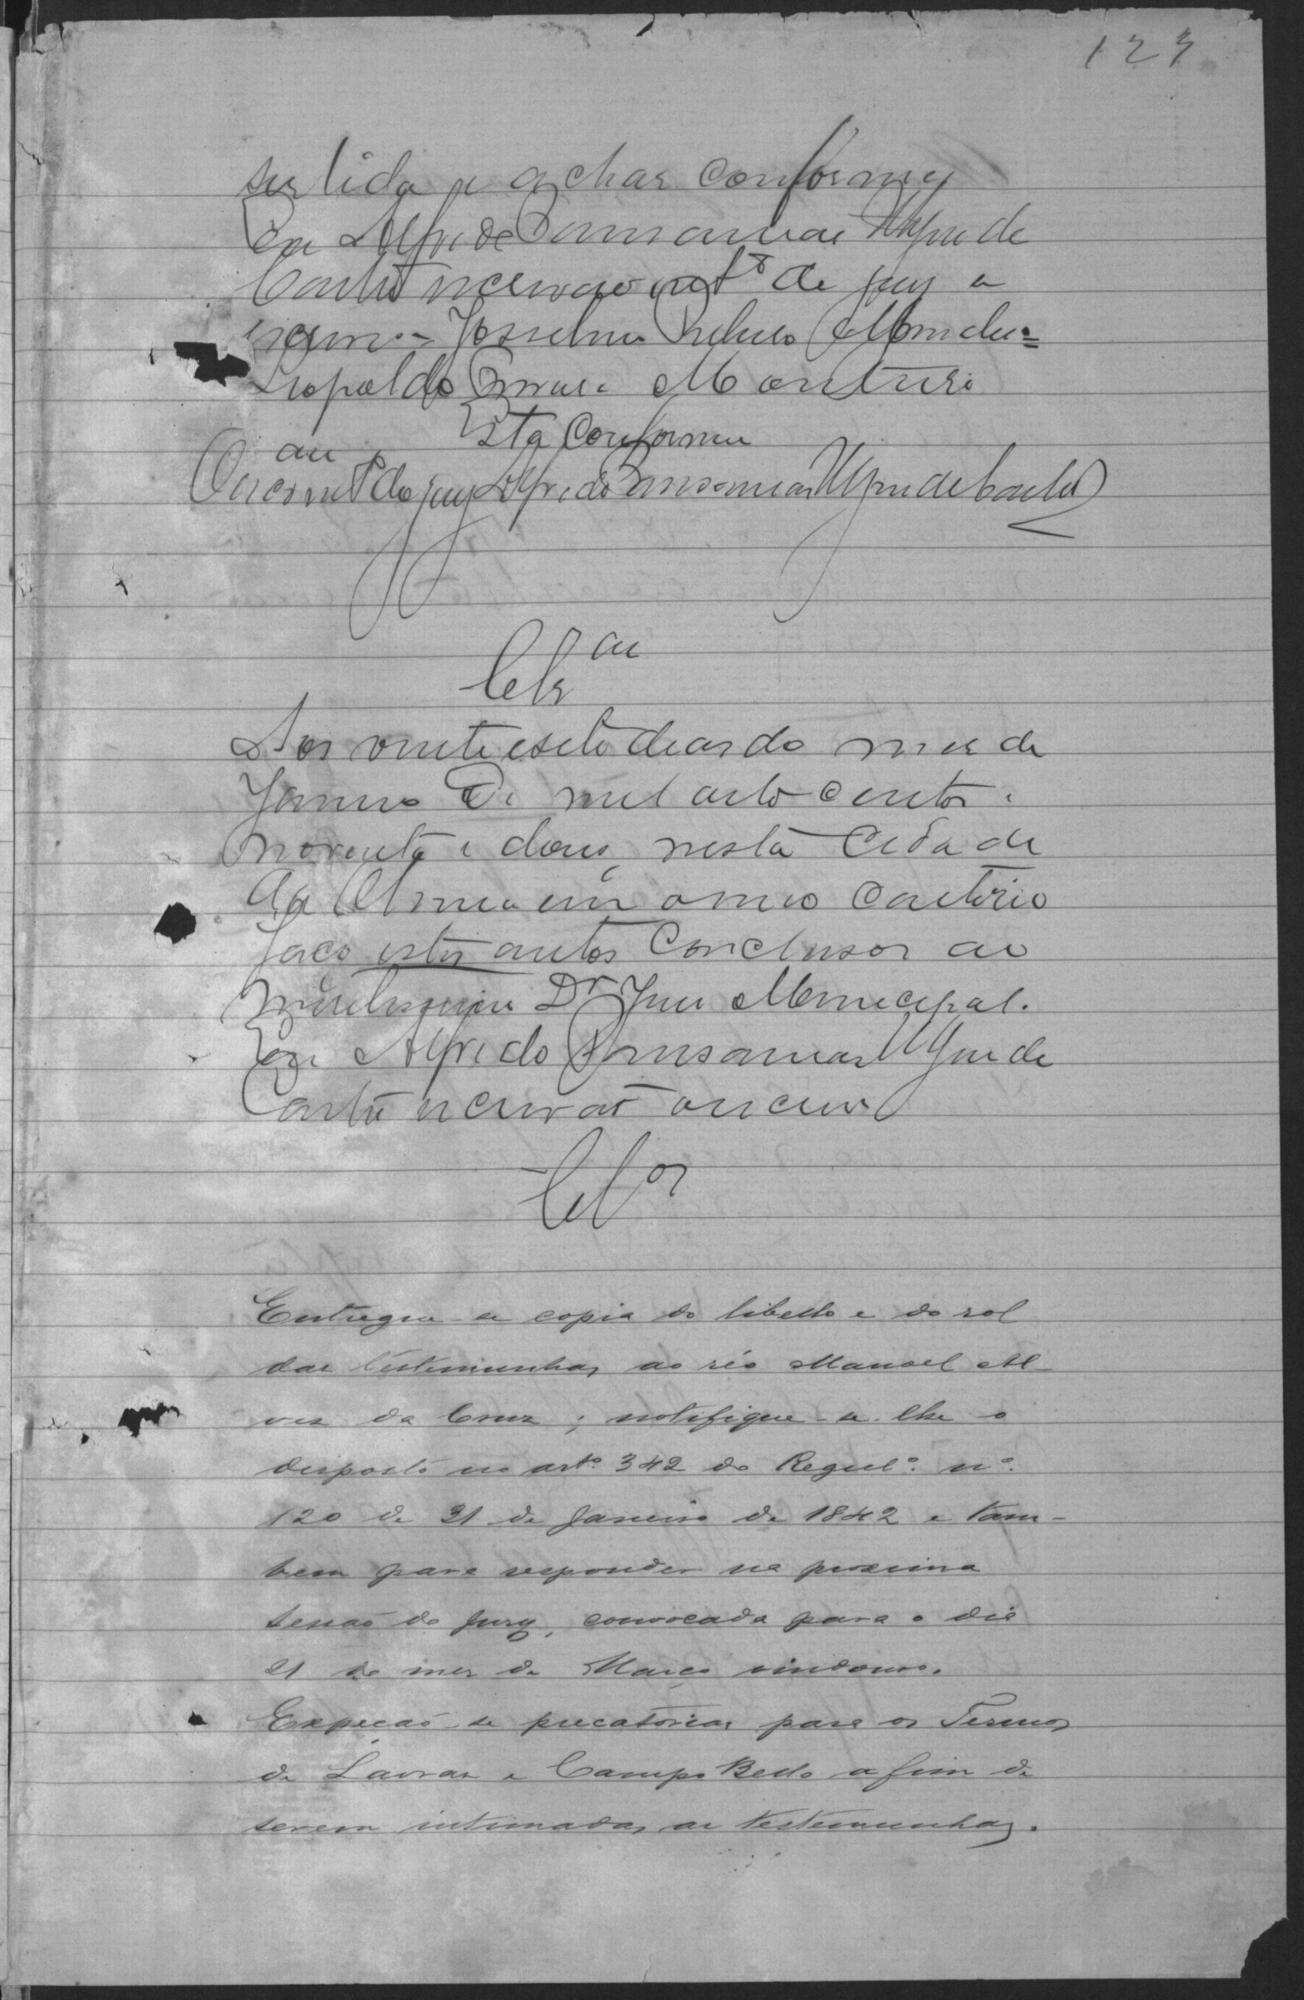 127
ser lida e achar conforme
Eu Alfredo
Castro escrivão de jury o
escrevi = Josselino
Leopoldo Monteiro
Está Conforme
O escrm do jury Alfredo de Castro
Clsão
Aos vinte e sete dias do mez de
Janeiro de mil oito centos e
noventa e dous, nesta Cidade
da em o meo Cartorio
faço estes autos Conclusos ao
Dr. Juiz Municipal.
Eu Alfredo de
Castro escrivão o escrevi
Clos
Entregue-se copia do libello e do rol
das testemunhas ao réo Manoel Al-
ves da Cruz; notifique-se-lhe o
disposto no arto. 342 do Regulo. no.
120 de 31 de Janeiro de 1842 e tam-
bem para responder na proxima
sessão do Jury, convocada para o dia
21 do mez de Março vindouro.
Expeção-se precatorias para os Termos
de Lavras e Campo Bello a fim de
serem intimadas as testemunhas.